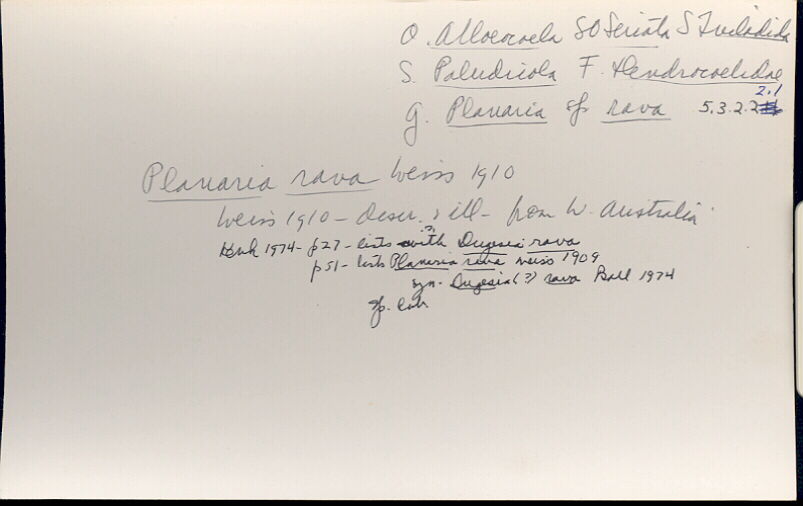 O. Alloeocoela SO Seriata S Tricladida
S. Paludicola F. Dendrocoelidae
2.1
G. Planaria sp rava 5.3.2.2
Planaria rava Weiss 1910
Weiss 1910 - descr. & ill - from W. Australia
1974 - p27 - lists with Dugesia rava
(?)
p51 - lists Planaria rava Weiss 1909
syn. Dugesia (?) rava Ball 1974
sp.